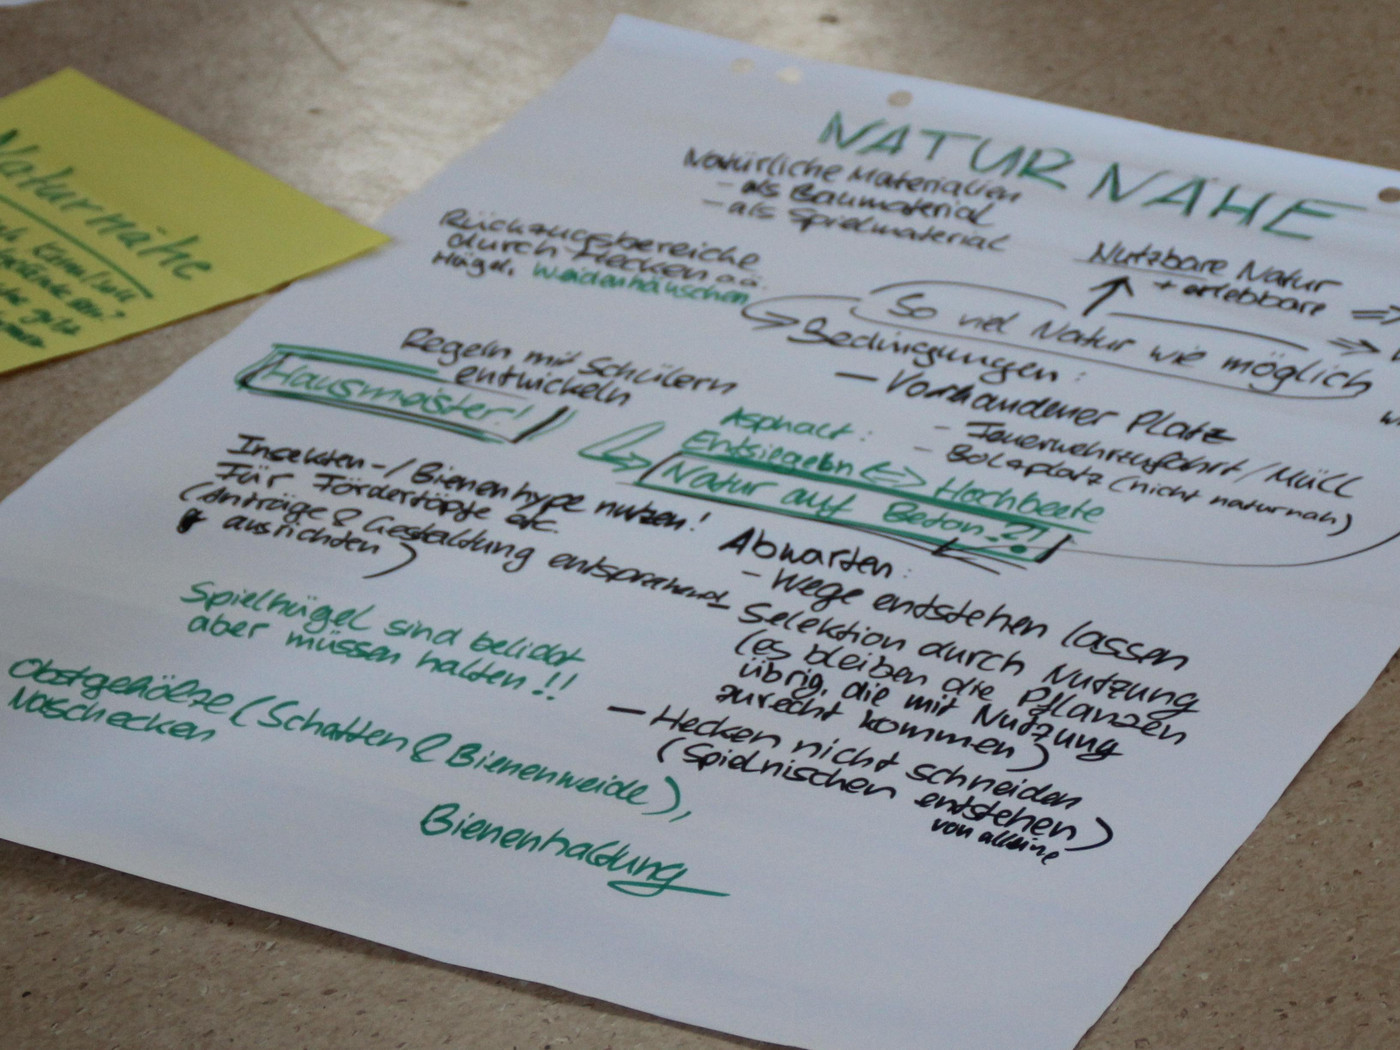 NATUR NÄHE
Natürliche Materialien
- als Baumaterial
- als Spielmaterial
Rückzugsbereiche
durch Hecken o.ä.
Hügel, Weidenhäuschen
Nutzbare Natur
+ erlebbare
So viel Natur wie möglich
Bedingungen:
- Vorhandener Platz
- Feuerwehrzufahrt/Müll
- Bolzplatz (nicht naturnah)
Regeln mit Schülern
entwickeln
Hausmeister!
Asphalt:
Entsiegeln <=> Hochbeete
Natur auf Beton?!
Insekten-/Bienenhype nutzen!
Für Fördertöpfe etc.
(Anträge & Gestaltung entsprechend
ausrichten)
Abwarten:
- Wege entstehen lassen
- Selektion durch Nutzung
(es bleiben die Pflanzen
übrig, die mit Nutzung
zurecht kommen)
- Hecken nicht schneiden
(Spielnischen entstehen)
von alleine
Spielhügel sind beliebt
aber müssen halten!!
Obstgehölze (Schatten & Bienenweide),
Naschecken
Bienenhaltung
Naturnähe